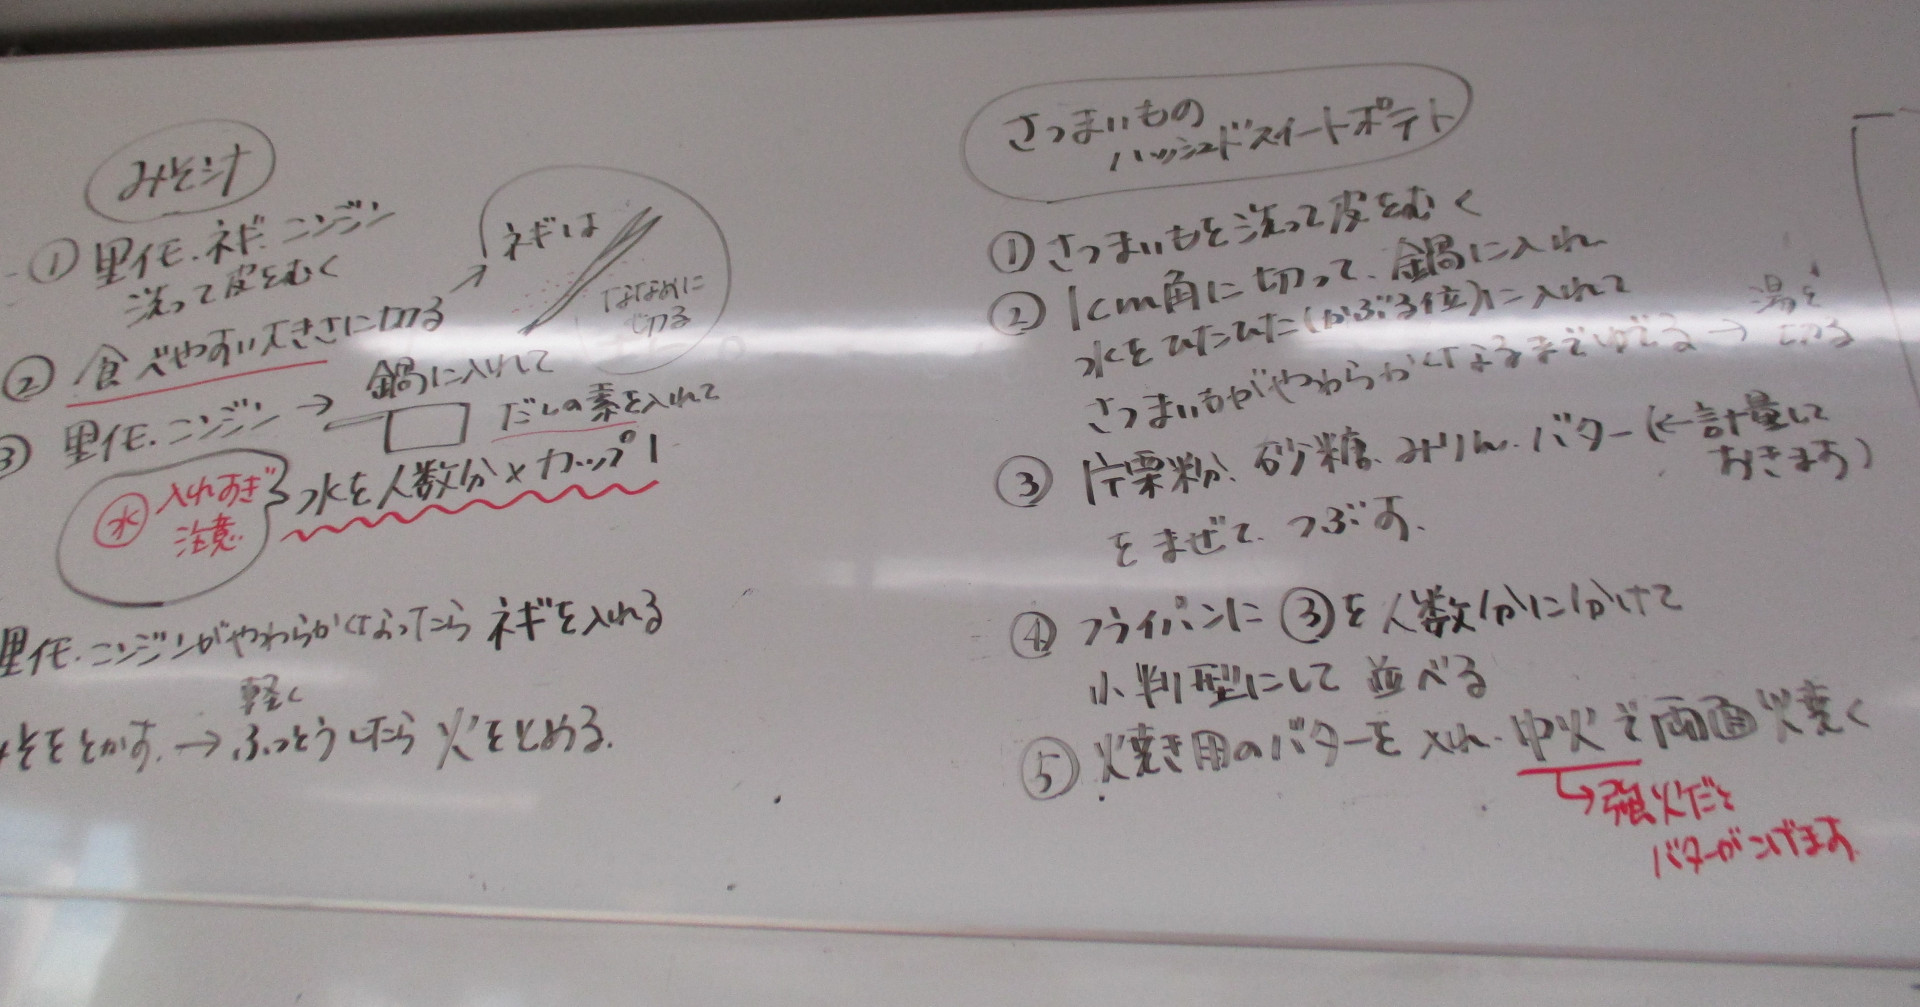 みそ汁
① 里芋.ネギ.ニンジン
洗って皮をむく
② 食べやすい大きさに切る →
ネギは
ななめに
切る
③ 里芋.ニンジン → 鍋に入れて
だしの素を入れて
水を人数分×カップ1
水 入れすぎ
注意
里芋.ニンジンがやわらかくなったら ネギを入れる
軽く
みそをとかす. → ふっとうしたら 火をとめる.
さつまいもの
ハッシュドスイートポテト
① さつまいもを洗って皮をむく
② 1cm角に切って、鍋に入れ
水をひたひた(かぶる位)に入れて
さつまいもがやわらかくなるまでゆでる → 湯を
切る
③ 片栗粉、砂糖、みりん.バター (←計量して
おきます)
をまぜて、つぶす.
④ フライパンに ③を人数分に分けて
小判型にして 並べる
⑤ 焼き用のバターを入れ.中火で両面焼く
↳強火だと
バターがこげます.